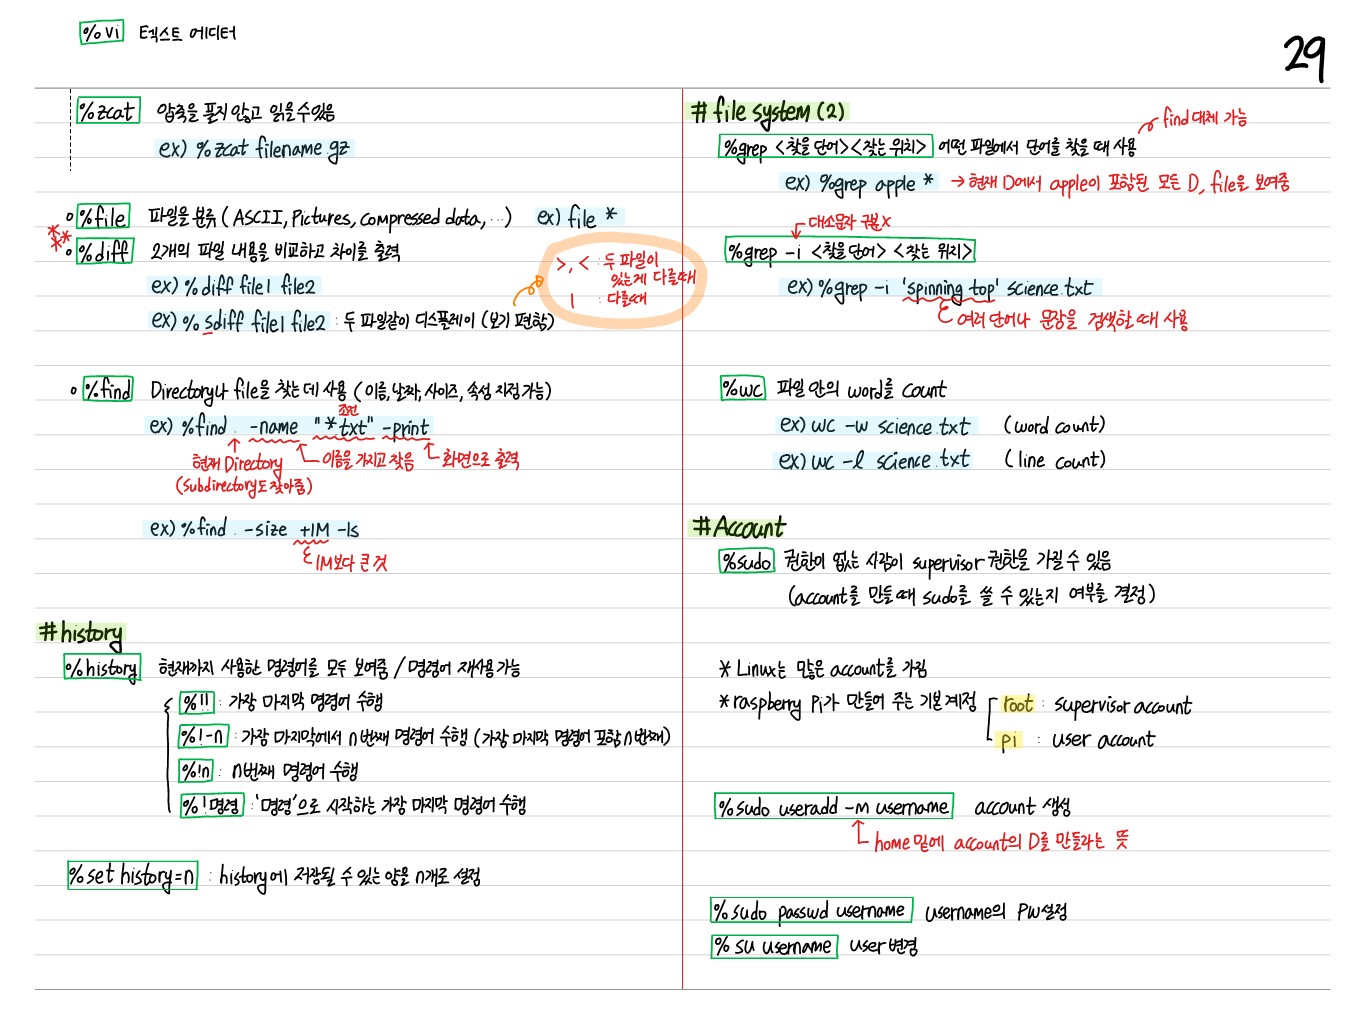 %vi 텍스트 에디터
29
%zcat 압축을 풀지 않고 읽을 수 있음
ex) %zcat filename gz
%file 파일을 분류 (ASCII, Pictures, compressed data, ...) ex) file *
%diff 2개의 파일 내용을 비교하고 차이를 출력
>, < : 두 파일이
있는게 다를때
| : 다를때
ex) %diff file1 file2
ex) % sdiff file1 file2 : 두 파일같이 디스플레이 (보기 편함)
%find Directory나 file을 찾는 데 사용 (이름, 날짜, 사이즈, 속성 지정 가능)
조건
ex) %find . -name "*txt" -print
현재 Directory 이름을 가지고 찾음 화면으로 출력
(subdirectory도 찾아줌)
ex) %find . -size +1M -ls
1M보다 큰 것
#history
%history 현재까지 사용한 명령어를 모두 보여줌 / 명령어 재사용 가능
%!! : 가장 마지막 명령어 수행
%!-n : 가장 마지막에서 n번째 명령어 수행 (가장 마지막 명령어 포함 n번째)
%!n : n번째 명령어 수행
%!명령 : '명령'으로 시작하는 가장 마지막 명령어 수행
%set history=n : history에 저장될 수 있는 양을 n개로 설정
# file system (2)
find 대체 가능
%grep <찾을 단어> <찾는 위치> 어떤 파일에서 단어를 찾을 때 사용
ex) %grep apple * → 현재 D에서 apple이 포함된 모든 D, file을 보여줌
대소문자 구분X
%grep -i <찾을 단어> <찾는 위치>
ex) %grep -i 'spinning top' science.txt
여러 단어나 문장을 검색할 때 사용
%wc 파일 안의 word를 count
ex) wc -w science.txt (word count)
ex) wc -l science.txt (line count)
#Account
%sudo 권한이 없는 사람이 supervisor 권한을 가질 수 있음
(account를 만들 때 sudo를 쓸 수 있는지 여부를 결정)
* Linux는 많은 account를 가짐
* raspberry Pi가 만들어 주는 기본 계정 root : supervisor account
pi : user account
%sudo useradd -m username account 생성
home 밑에 account의 D를 만들라는 뜻
%sudo passwd username username의 PW설정
%su username user 변경